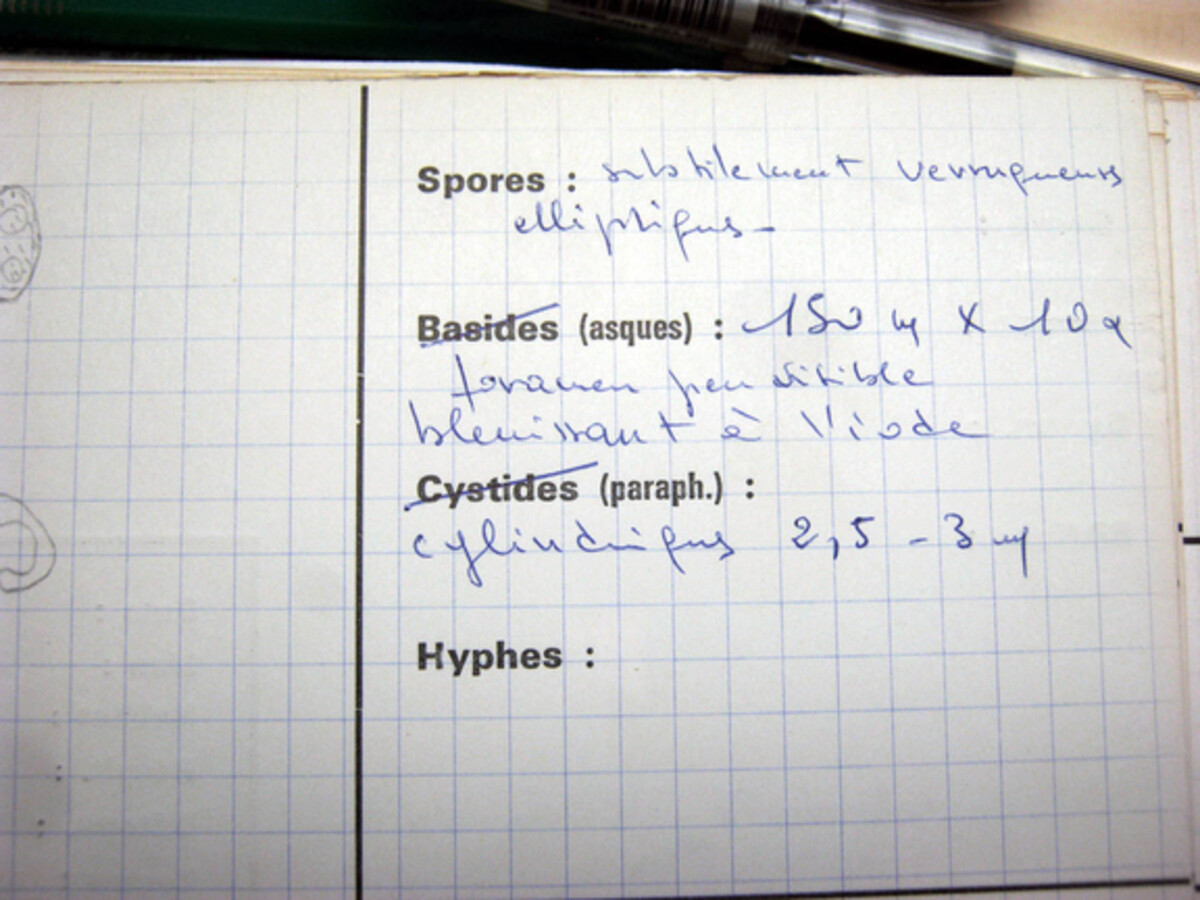 Spores : subtilement verruqueuses
elliptiques -
Basides (asques) : 150 µ x 10 µ
foramen peu visible
bleuissant à l'iode
Cystides (paraph.) :
cylindriques 2,5 - 3 µ
Hyphes :